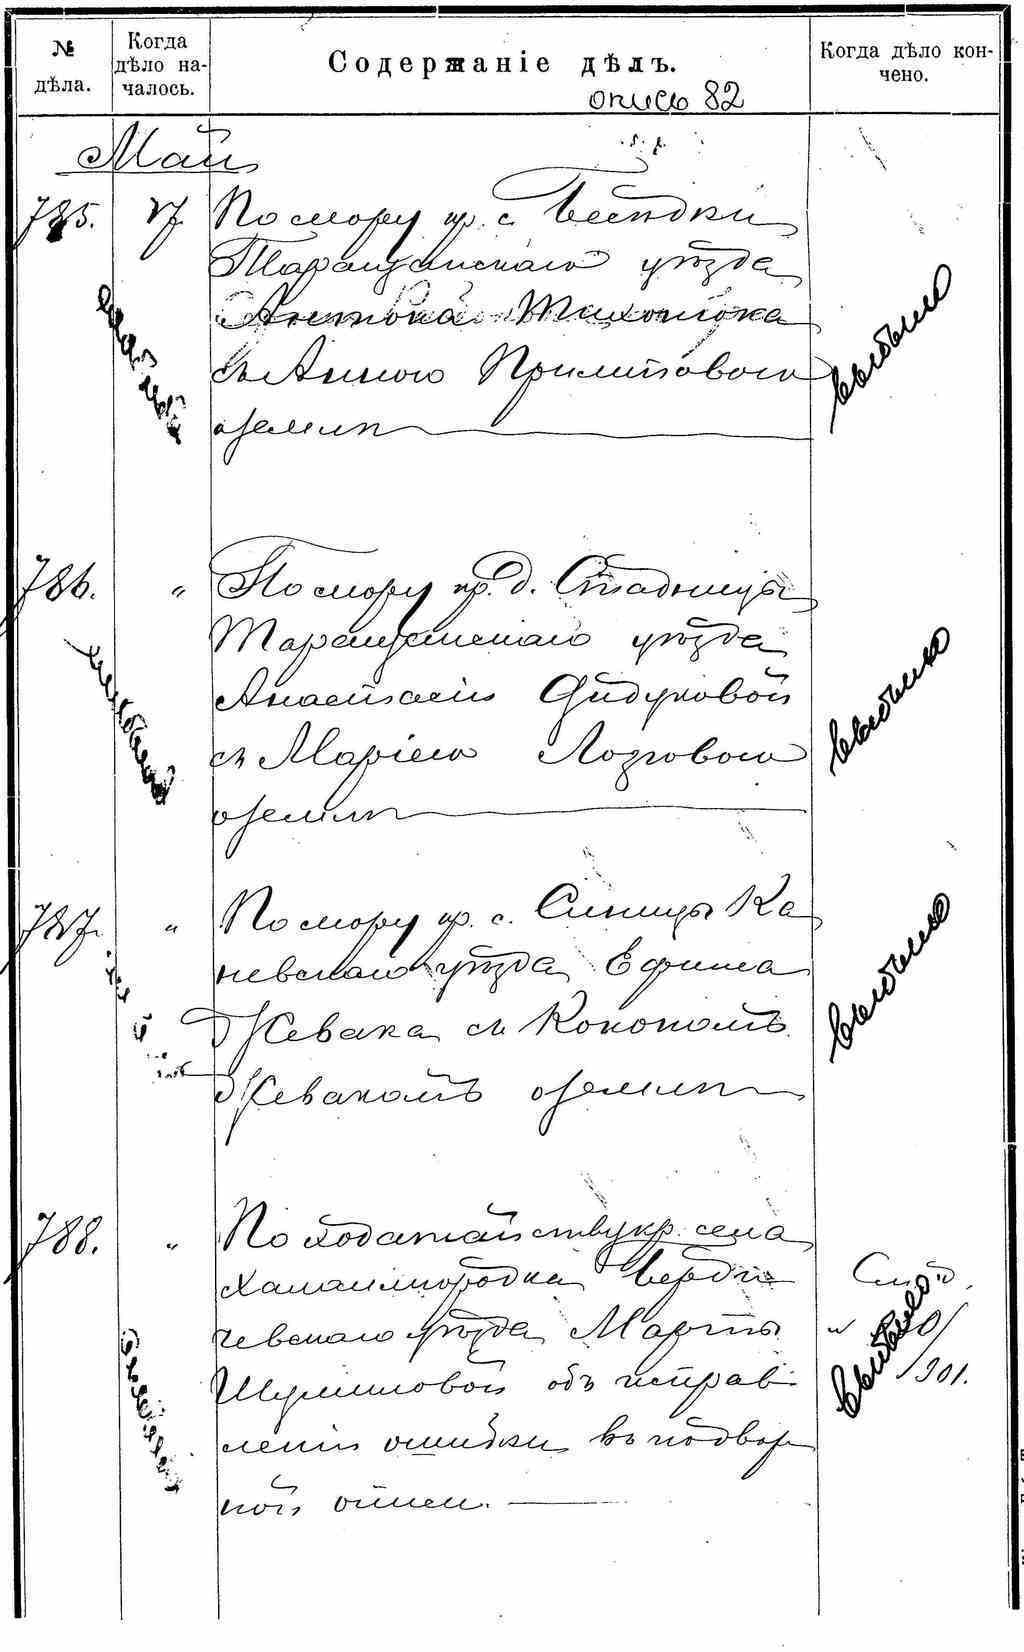 № дѣла.
Когда дѣло на-
чалось.
Содержаніе дѣлъ.
Когда дѣло кон-
чено.
опись 82
Май
785.
По спору кр. с. Бесѣдки
Таращанскаго уѣзда
Антона Тихонюка
съ Анною
о землѣ
выбыло
786. "
По спору кр. д. Стадницы
Таращанскаго уѣзда
Анастасіи
съ Маріею Лозовою
о землѣ
выбыло
787. "
По спору кр. с. Синицы Ка
невскаго уѣзда Ефима
Жевака съ Конономъ
Жевакомъ о землѣ
выбыло
788. "
По ходатайству кр. села
Халаимгородка Берди
чевскаго уѣзда Марты
Шулимовой объ исправ
леніи ошибки въ подвор
ной описи.
выбыло
901.